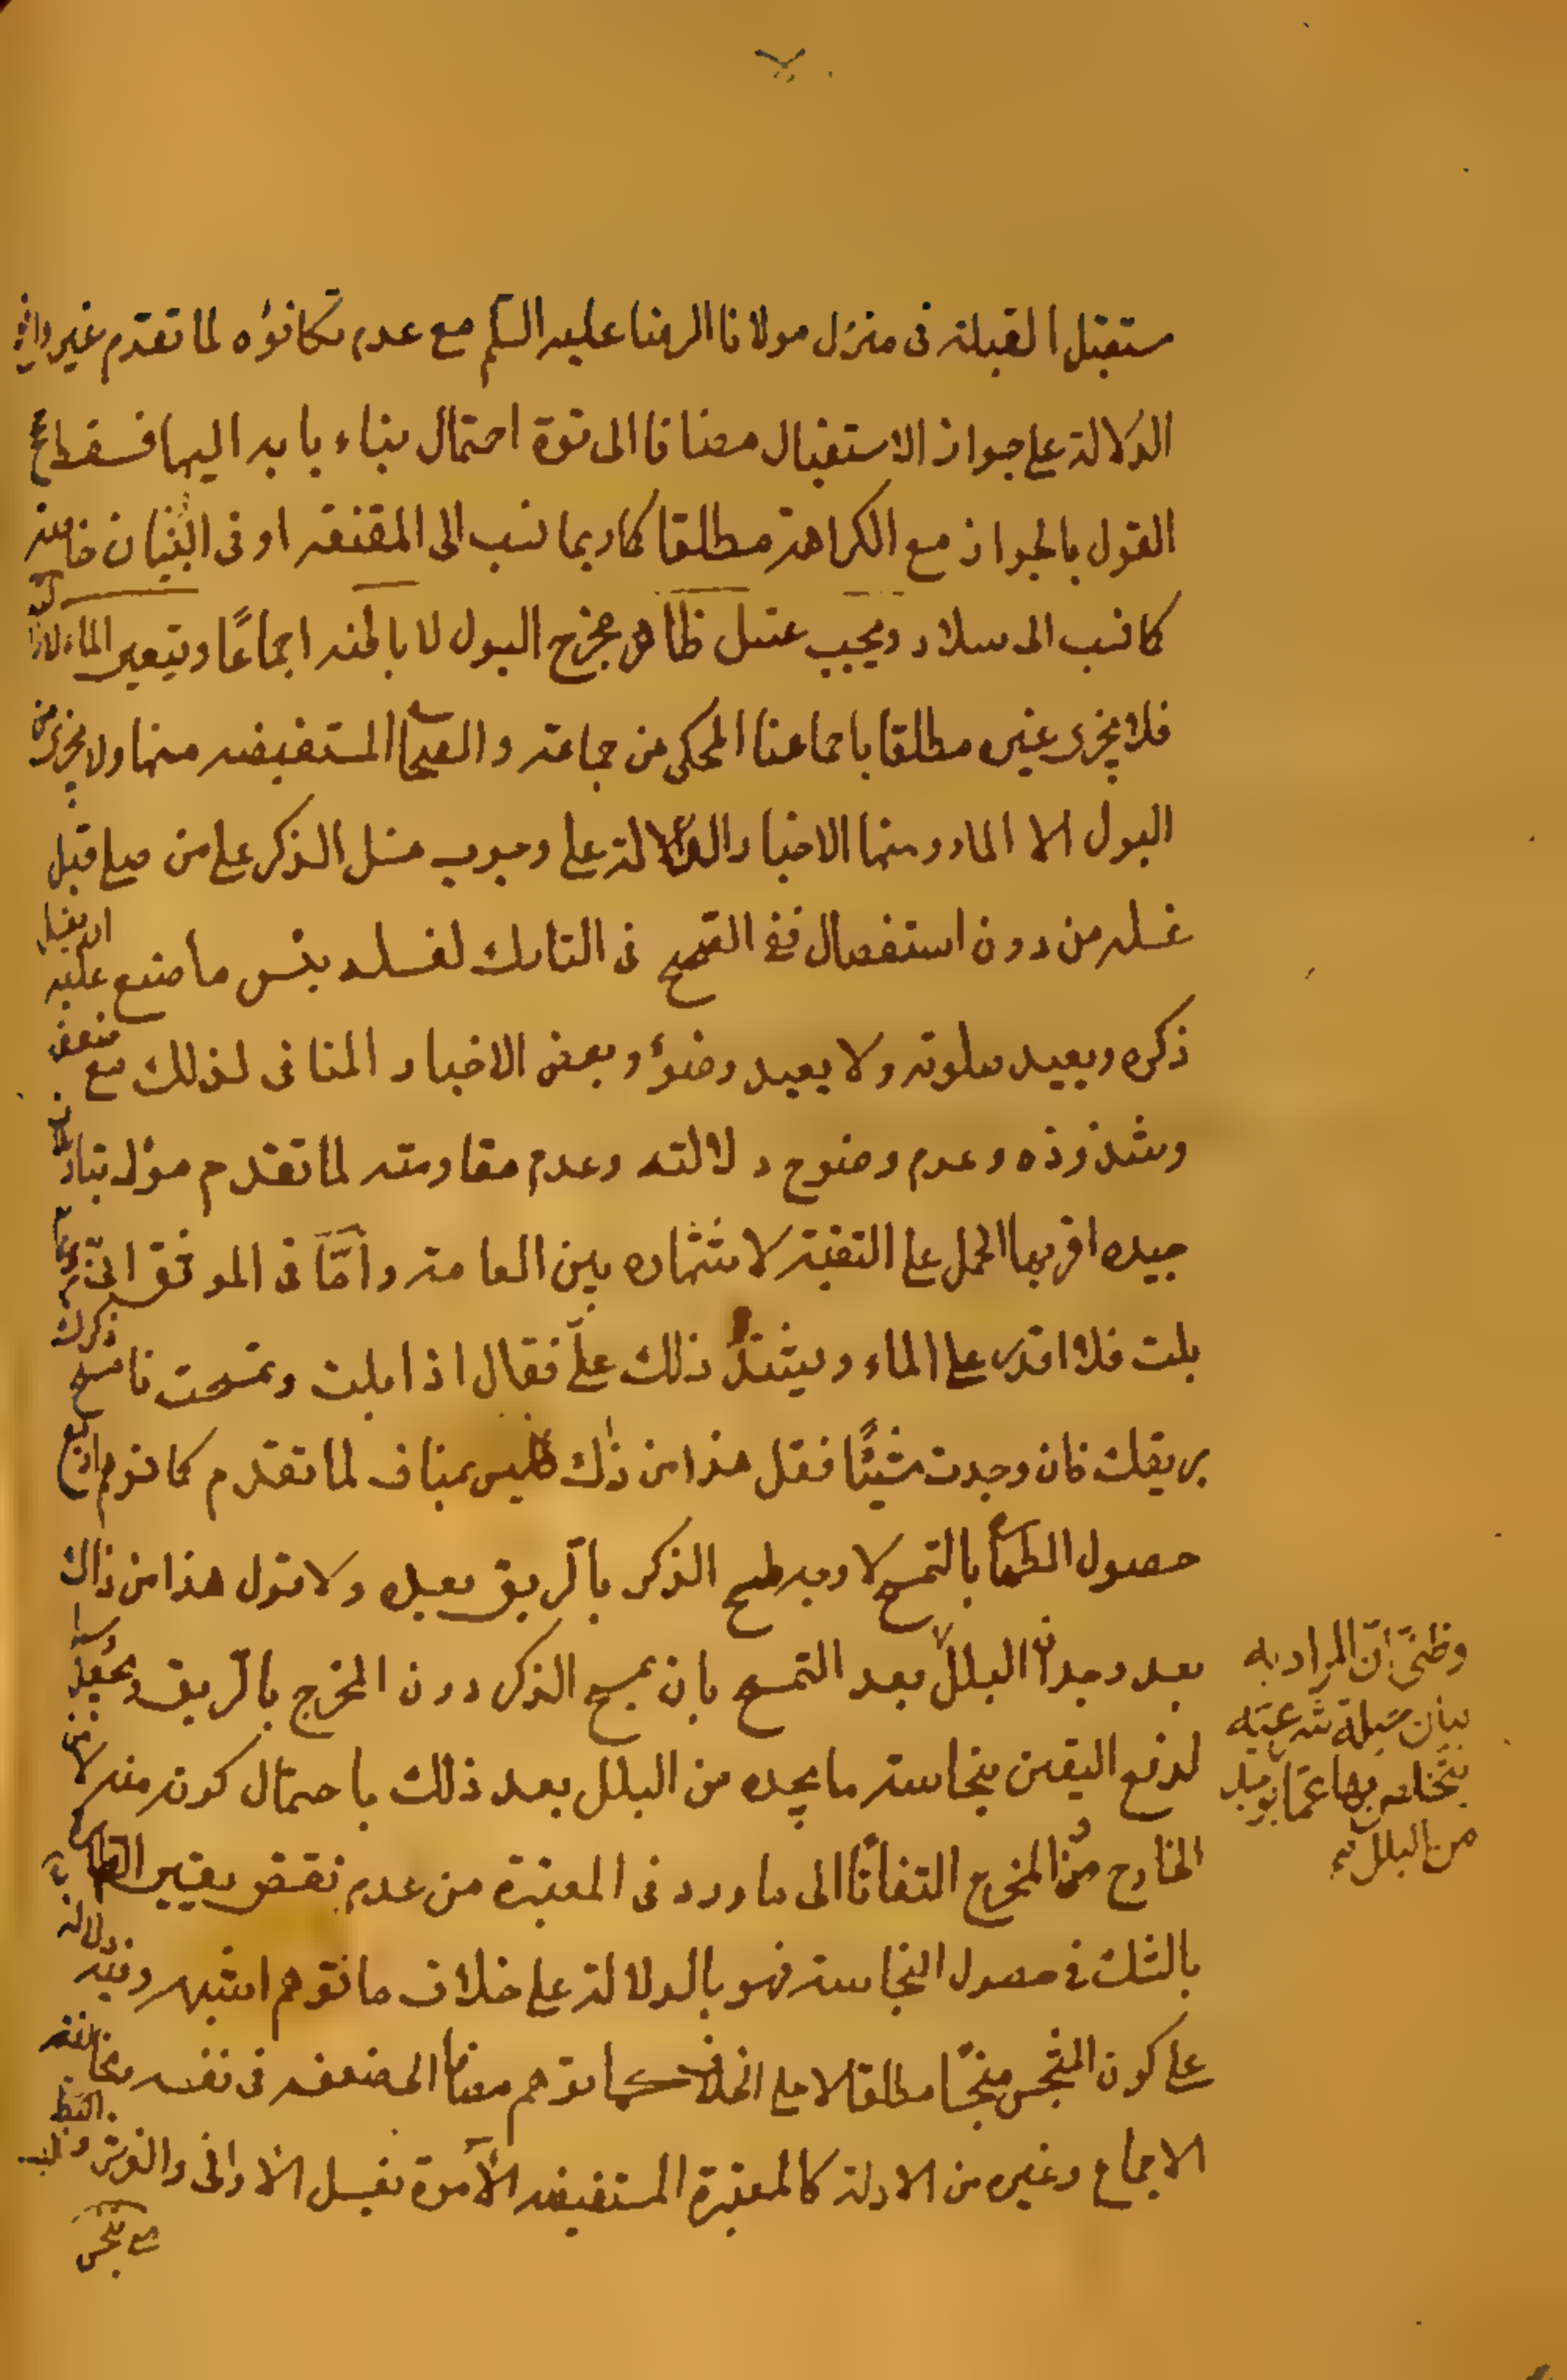 مستقبل القبلة فى منزل مولانا الرضا عليه السلم مع عدم تكافؤه لما تقدم غير واضح
الدلالة على جواز الاستقبال مضافا الى قوة احتمال بناء بابه اليها فسقط
القول بالجواز مع الكراهة مطلقا كما ربما نسب الى المقنعة او فى البنيان خاصة
كما نسب الى سلار ويجب غسل ظاهر مخرج البول لا باطنه اجماعًا ويتعين الماء لازالته
فلا يجزى غيره مطلقا باجماعنا المحكى من جماعة والصحا المستفيضه منها ولا يجزى من
البول الا الماء ومنها الاخبار الدالة على وجوب غسل الذكر على من صلى قبل
غسله من دون استفصال ففى الصحيح فى التارك لغسله بئس ما صنع عليه ان يغسل
ذكره ويعيد صلوته ولا يعيد وضوؤه وبعض الاخبار المنافى لذلك مع ضعفه
وشذوذه وعدم وضوح دلالته وعدم مقاومته لما تقدم مؤل بتاويلات
جيده اقربها الحمل على التقية لاشتهاره بين العامة وامّا فى الموثق انى ربما
بلت فلا اقدر على الماء ويشتد ذلك علىّ فقال اذا بلت وتمسحت فامسح ذكرك
بريقك فان وجدت شيئًا فقل هذا من ذاك فليس بمناف لما تقدم كما توهم
حصول الطها بالتمسح لا وجه لمسح الذكر بالريق بعده ولا قول هذا من ذاك
بعد وجدان البلل بعد التمسح بان يمسح الذكر دون المخرج بالريق ويجعله
لدفع اليقين بنجاسة ما يجده من البلل بعد ذلك باحتمال كونه منه لا من
الخارج من المخرج التفاتًا الى ما ورد فى المعتبرة من عدم نقض يقين الطهارة
بالشك فى حصول النجاسة فهو بالدلالة على خلاف ما توهم اشبه وفيه دلالة
على كون المتنجس منجسًا مطلقا لا على الخلاف كما توهم مضافا الى ضعفه فى نفسه ومخالفته
الاجماع وغيره من الادلة كالمعتبرة المستفيضه الآمرة بغسل الاوانى والفرش والبسط
وظنى ان المراد به
بيان حيلة شرعيه
يتخلص بها عما يوجد
من البلل منه